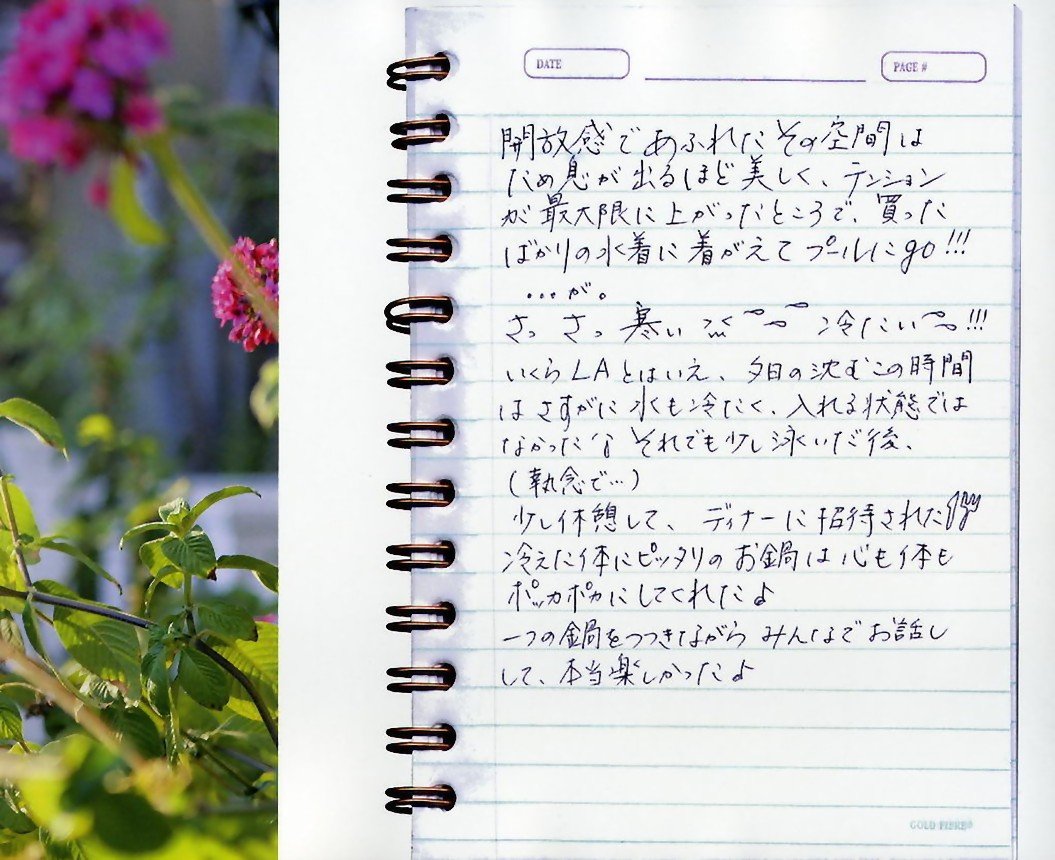 DATE
PAGE #
開放感であふれたその空間は
ため息が出るほど美しく、テンション
が最大限に上がったところで、買った
ばかりの水着に着がえてプールにgo!!!
...が。
さっ さっ 寒い 冷たい!!!
いくらLAとはいえ、夕日の沈むこの時間
はさすがに水も冷たく、入れる状態では
なかったな それでも少し泳いだ後、
(執念で…)
少し休憩して、ディナーに招待された
冷えた体にピッタリのお鍋は心も体も
ポッカポカにしてくれたよ
一つの鍋をつつきながらみんなでお話し
して、本当楽しかったよ
GOLD FIBRE®